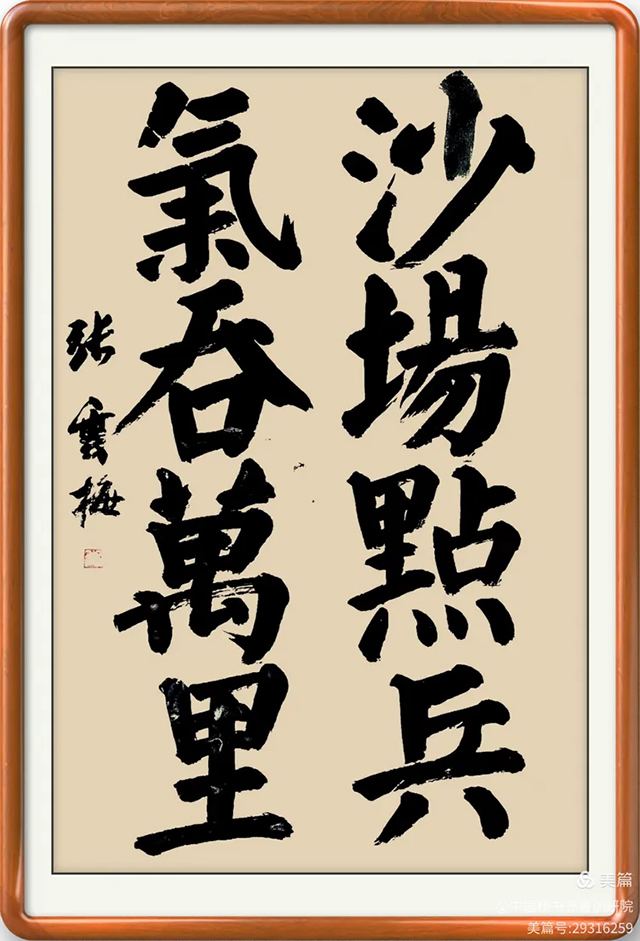 沙場點兵
氣吞萬里
张雲梅
美篇
美篇号:29316259